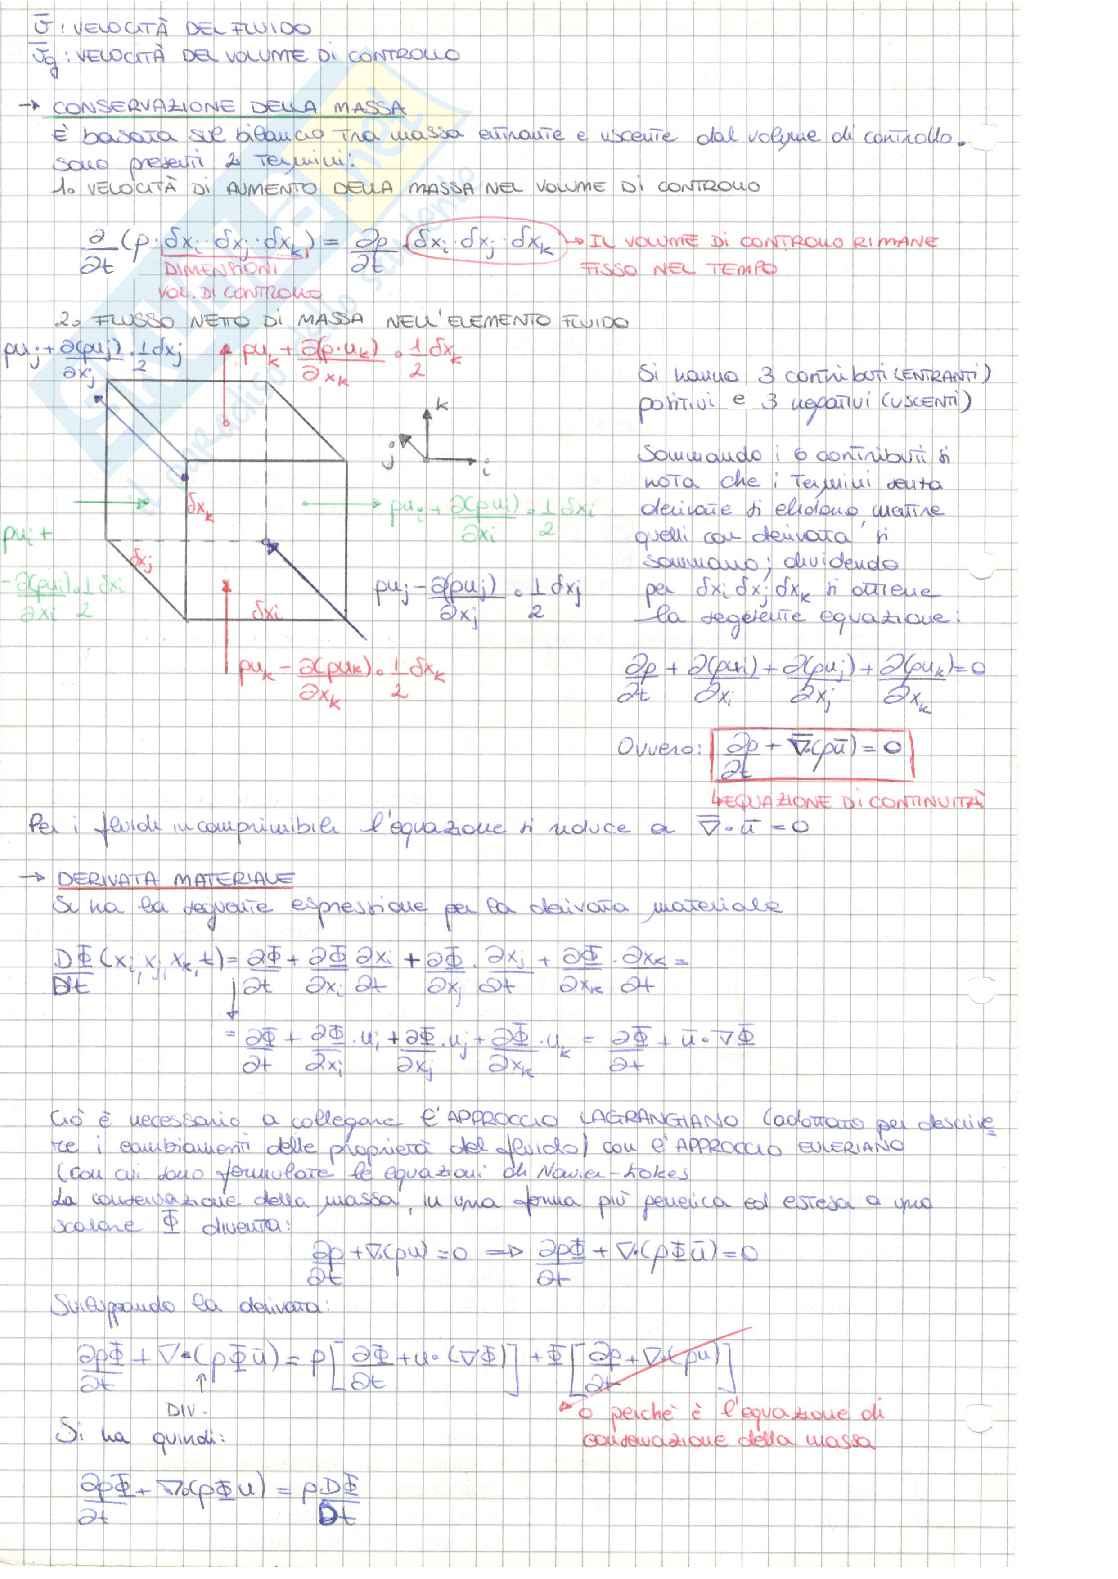 Ū : VELOCITÀ DEL FLUIDO
Ūg : VELOCITÀ DEL VOLUME DI CONTROLLO
→ CONSERVAZIONE DELLA MASSA
È basata sul bilancio tra massa entrante e uscente dal volume di controllo.
sono presenti 2 termini:
1. VELOCITÀ DI AUMENTO DELLA MASSA NEL VOLUME DI CONTROLLO
∂/∂t (ρ·δxi·δxj·δxk) = ∂ρ/∂t (δxi·δxj·δxk) → IL VOLUME DI CONTROLLO RIMANE
FISSO NEL TEMPO
DIMENSIONI
VOL. DI CONTROLLO
2. FLUSSO NETTO DI MASSA NELL'ELEMENTO FLUIDO
ρuj + ∂(ρuj)/∂xj · 1/2 δxj
ρuk + ∂(ρ·uk)/∂xk · 1/2 δxk
k
j
i
δxk
δxj
δxi
ρui + ∂(ρui)/∂xi · 1/2 δxi
ρui +
- ∂(ρui)/∂xi · 1/2 δxi
ρuj - ∂(ρuj)/∂xj · 1/2 δxj
ρuk - ∂(ρuk)/∂xk · 1/2 δxk
Si hanno 3 contributi (ENTRANTI)
positivi e 3 negativi (USCENTI)
Sommando i 6 contributi si
nota che i termini senza
derivate si elidono mentre
quelli con derivata si
sommano; dividendo
per δxi δxj δxk si ottiene
la seguente equazione:
∂ρ/∂t + ∂(ρui)/∂xi + ∂(ρuj)/∂xj + ∂(ρuk)/∂xk = 0
Ovvero: ∂ρ/∂t + ∇̄·(ρū) = 0
↳ EQUAZIONE DI CONTINUITÀ
Per i fluidi incomprimibili l'equazione si riduce a ∇̄·ū = 0
→ DERIVATA MATERIALE
Si ha la seguente espressione per la derivata materiale
DΦ/Dt (xi, xj, xk, t) = ∂Φ/∂t + ∂Φ/∂xi ∂xi/∂t + ∂Φ/∂xj · ∂xj/∂t + ∂Φ/∂xk · ∂xk/∂t =
= ∂Φ/∂t + ∂Φ/∂xi · ui + ∂Φ/∂xj · uj + ∂Φ/∂xk · uk = ∂Φ/∂t + ū·∇Φ
Ciò è necessario a collegare l'APPROCCIO LAGRANGIANO (adottato per descrive-
re i cambiamenti delle proprietà del fluido) con l'APPROCCIO EULERIANO
(con cui sono formulate le equazioni di Navier-Stokes
La conservazione della massa, in una forma più generica ed estesa a uno
scalare Φ diventa:
∂ρ/∂t + ∇·(ρu) = 0 ⇒ ∂ρΦ/∂t + ∇·(ρΦū) = 0
Sviluppando la derivata:
∂ρΦ/∂t + ∇·(ρΦū) = ρ[∂Φ/∂t + u·(∇Φ)] + Φ[∂ρ/∂t + ∇·(ρu)]
↑
DIV.
→ 0 perchè è l'equazione di
conservazione della massa
Si ha quindi:
∂ρΦ/∂t + ∇·(ρΦu) = ρ DΦ/Dt